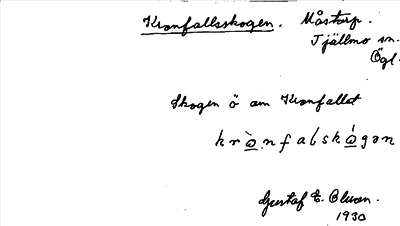 Kronfallsskogen. Måstorp.
Tjällmo sn.
Ögl.
Skogen ö om Kronfallet
krò̲nfalskó̲gən
Gustaf E. Olsson.
1930